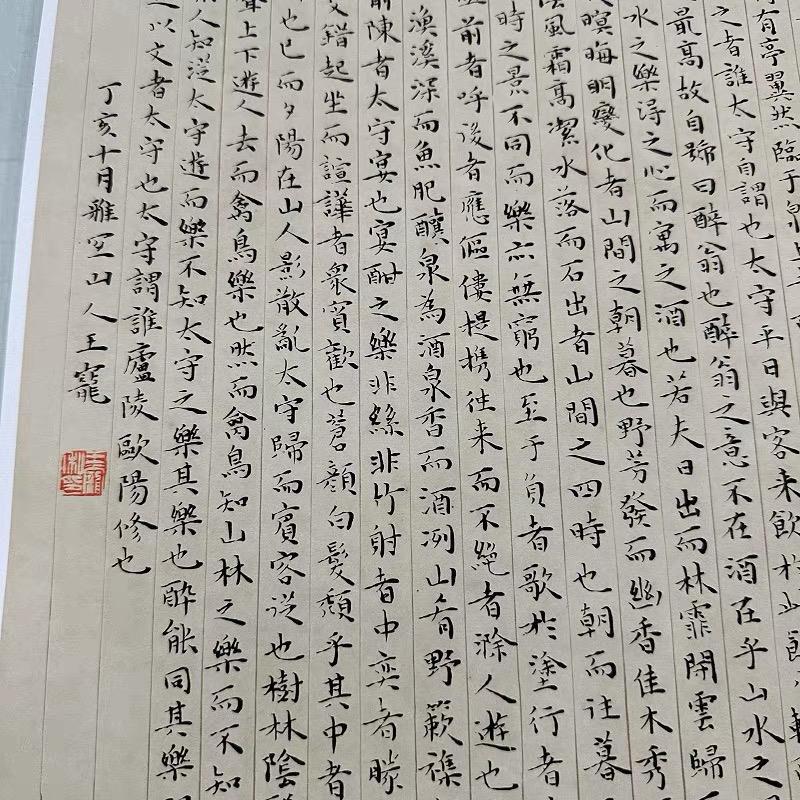 有亭翼然臨于泉上
之者誰太守自謂也太守平日與客來飲於此飲少輒
最高故自號曰醉翁也醉翁之意不在酒在乎山水之
水之樂得之心而寓之酒也若夫日出而林霏開雲歸
暝晦明變化者山間之朝暮也野芳發而幽香佳木秀
風霜高潔水落而石出者山間之四時也朝而往暮
時之景不同而樂亦無窮也至于負者歌於塗行者
前者呼後者應傴僂提攜往來而不絕者滁人遊也
漁溪深而魚肥釀泉為酒泉香而酒洌山肴野蔌襍
前陳者太守宴也宴酣之樂非絲非竹射者中奕者勝
交錯起坐而諠譁者衆賓歡也蒼顏白髮頹乎其中者
也已而夕陽在山人影散亂太守歸而賓客從也樹林陰
聲上下遊人去而禽鳥樂也然而禽鳥知山林之樂而不知
人知從太守遊而樂不知太守之樂其樂也醉能同其樂
以文者太守也太守謂誰廬陵歐陽修也
丁亥十月雅宜山人王寵